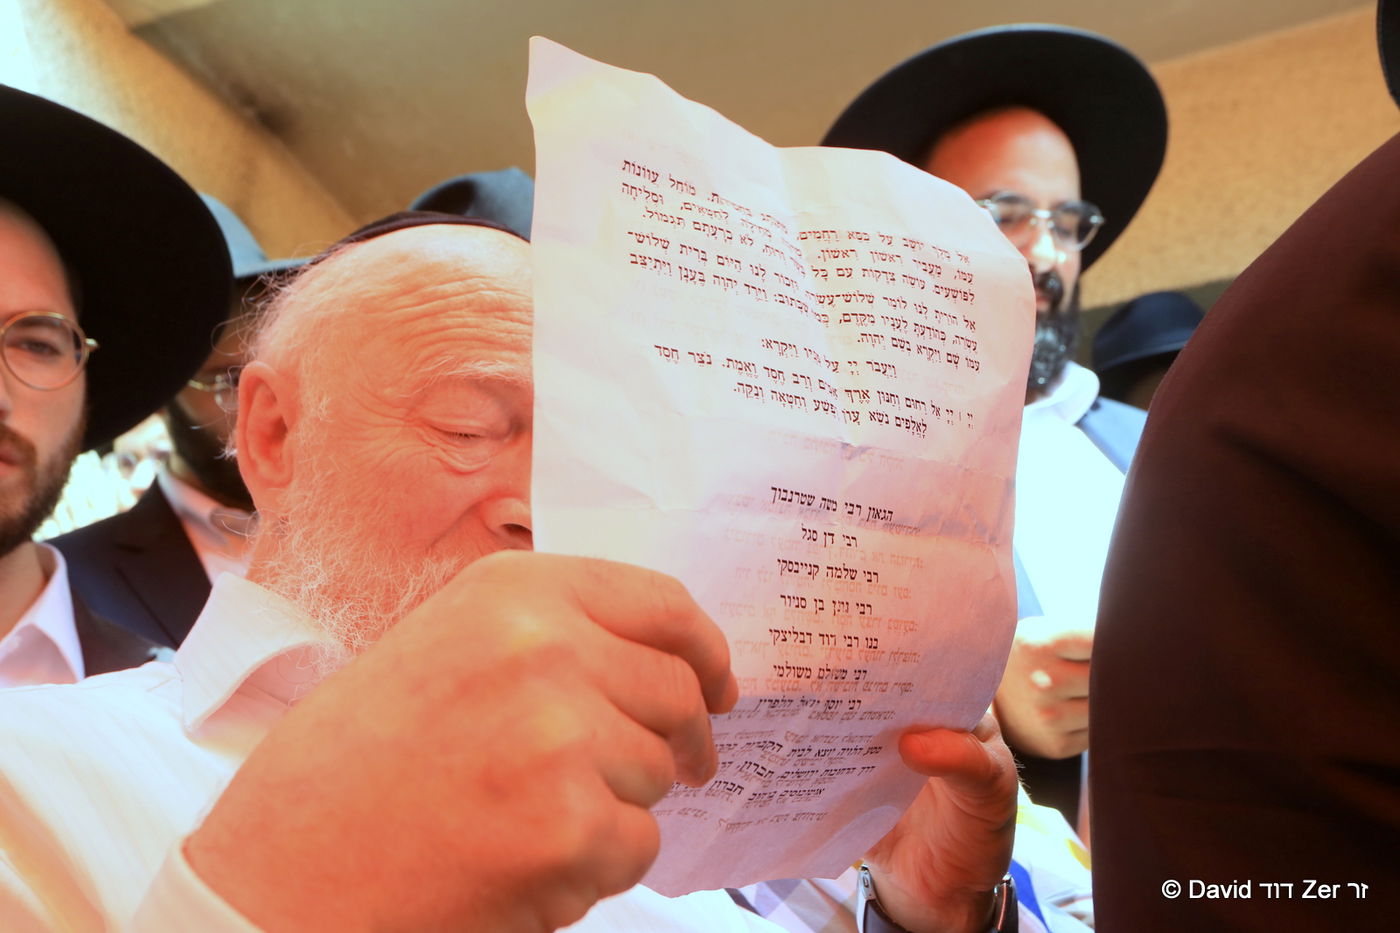 אֵל מֶלֶךְ יוֹשֵׁב עַל כִּסֵּא רַחֲמִים, בַּחֲסִידוּת. מוֹחֵל עֲוֹנוֹת
עַמּוֹ, מַעֲבִיר רִאשׁוֹן רִאשׁוֹן. מְחִילָה לְחַטָּאִים, וּסְלִיחָה
לְפוֹשְׁעִים עוֹשֶׂה צְדָקוֹת עִם כָּל וְרוּחַ, לֹא כְרָעָתָם תִּגְמוֹל.
אֵל הוֹרֵיתָ לָּנוּ לוֹמַר שְׁלוֹשׁ־עֶשְׂרֵה וּזְכוֹר לָנוּ הַיּוֹם בְּרִית שְׁלוֹשׁ־
עֶשְׂרֵה, כְּהוֹדַעְתָּ לֶעָנָיו מִקֶּדֶם, כְּמוֹ שֶׁכָּתוּב: וַיֵּרֶד יְהוָה בֶּעָנָן וַיִּתְיַצֵּב
עִמּוֹ שָׁם וַיִּקְרָא בְשֵׁם יְהוָה.
וַיַּעֲבֹר יְיָ עַל פָּנָיו וַיִּקְרָא:
יְיָ | יְיָ אֵל רַחוּם וְחַנּוּן אֶרֶךְ אַפַּיִם וְרַב חֶסֶד וֶאֱמֶת. נֹצֵר חֶסֶד
לָאֲלָפִים נֹשֵׂא עָוֹן וָפֶשַׁע וְחַטָּאָה וְנַקֵּה.
הגאון רבי משה שטרנבוך
רבי דן סגל
רבי שלמה קנייבסקי
רבי נתן בן סניור
בנו רבי דוד דבליצקי
רבי משולם משולמי
רבי יוסף יגאל הלפרין
מסע הלויה יוצא לבית הקברות
דרך הרחובות ירושלים, חברון,
אוטובוסים ברחוב חברון
© David דוד Zer זר